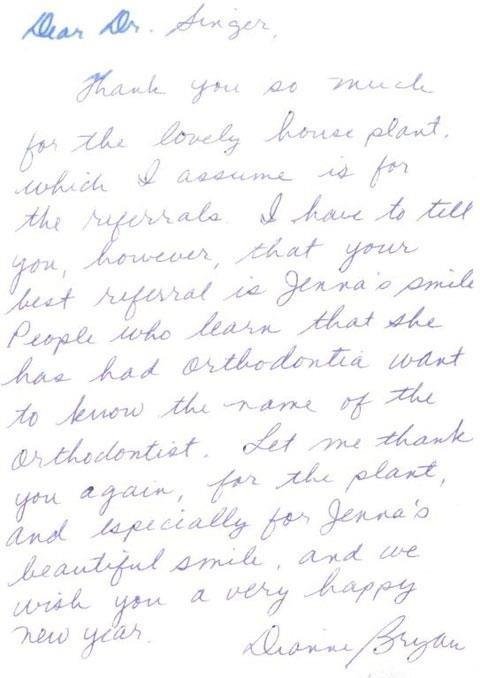 Dear Dr. Singer,
Thank you so much
for the lovely house plant,
which I assume is for
the referrals. I have to tell
you, however, that your
best referral is Jenna's smile
People who learn that she
has had orthodontia want
to know the name of the
orthodontist. Let me thank
you again, for the plant,
and especially for Jenna's
beautiful smile, and we
wish you a very happy
new year.
Dianne Bryan